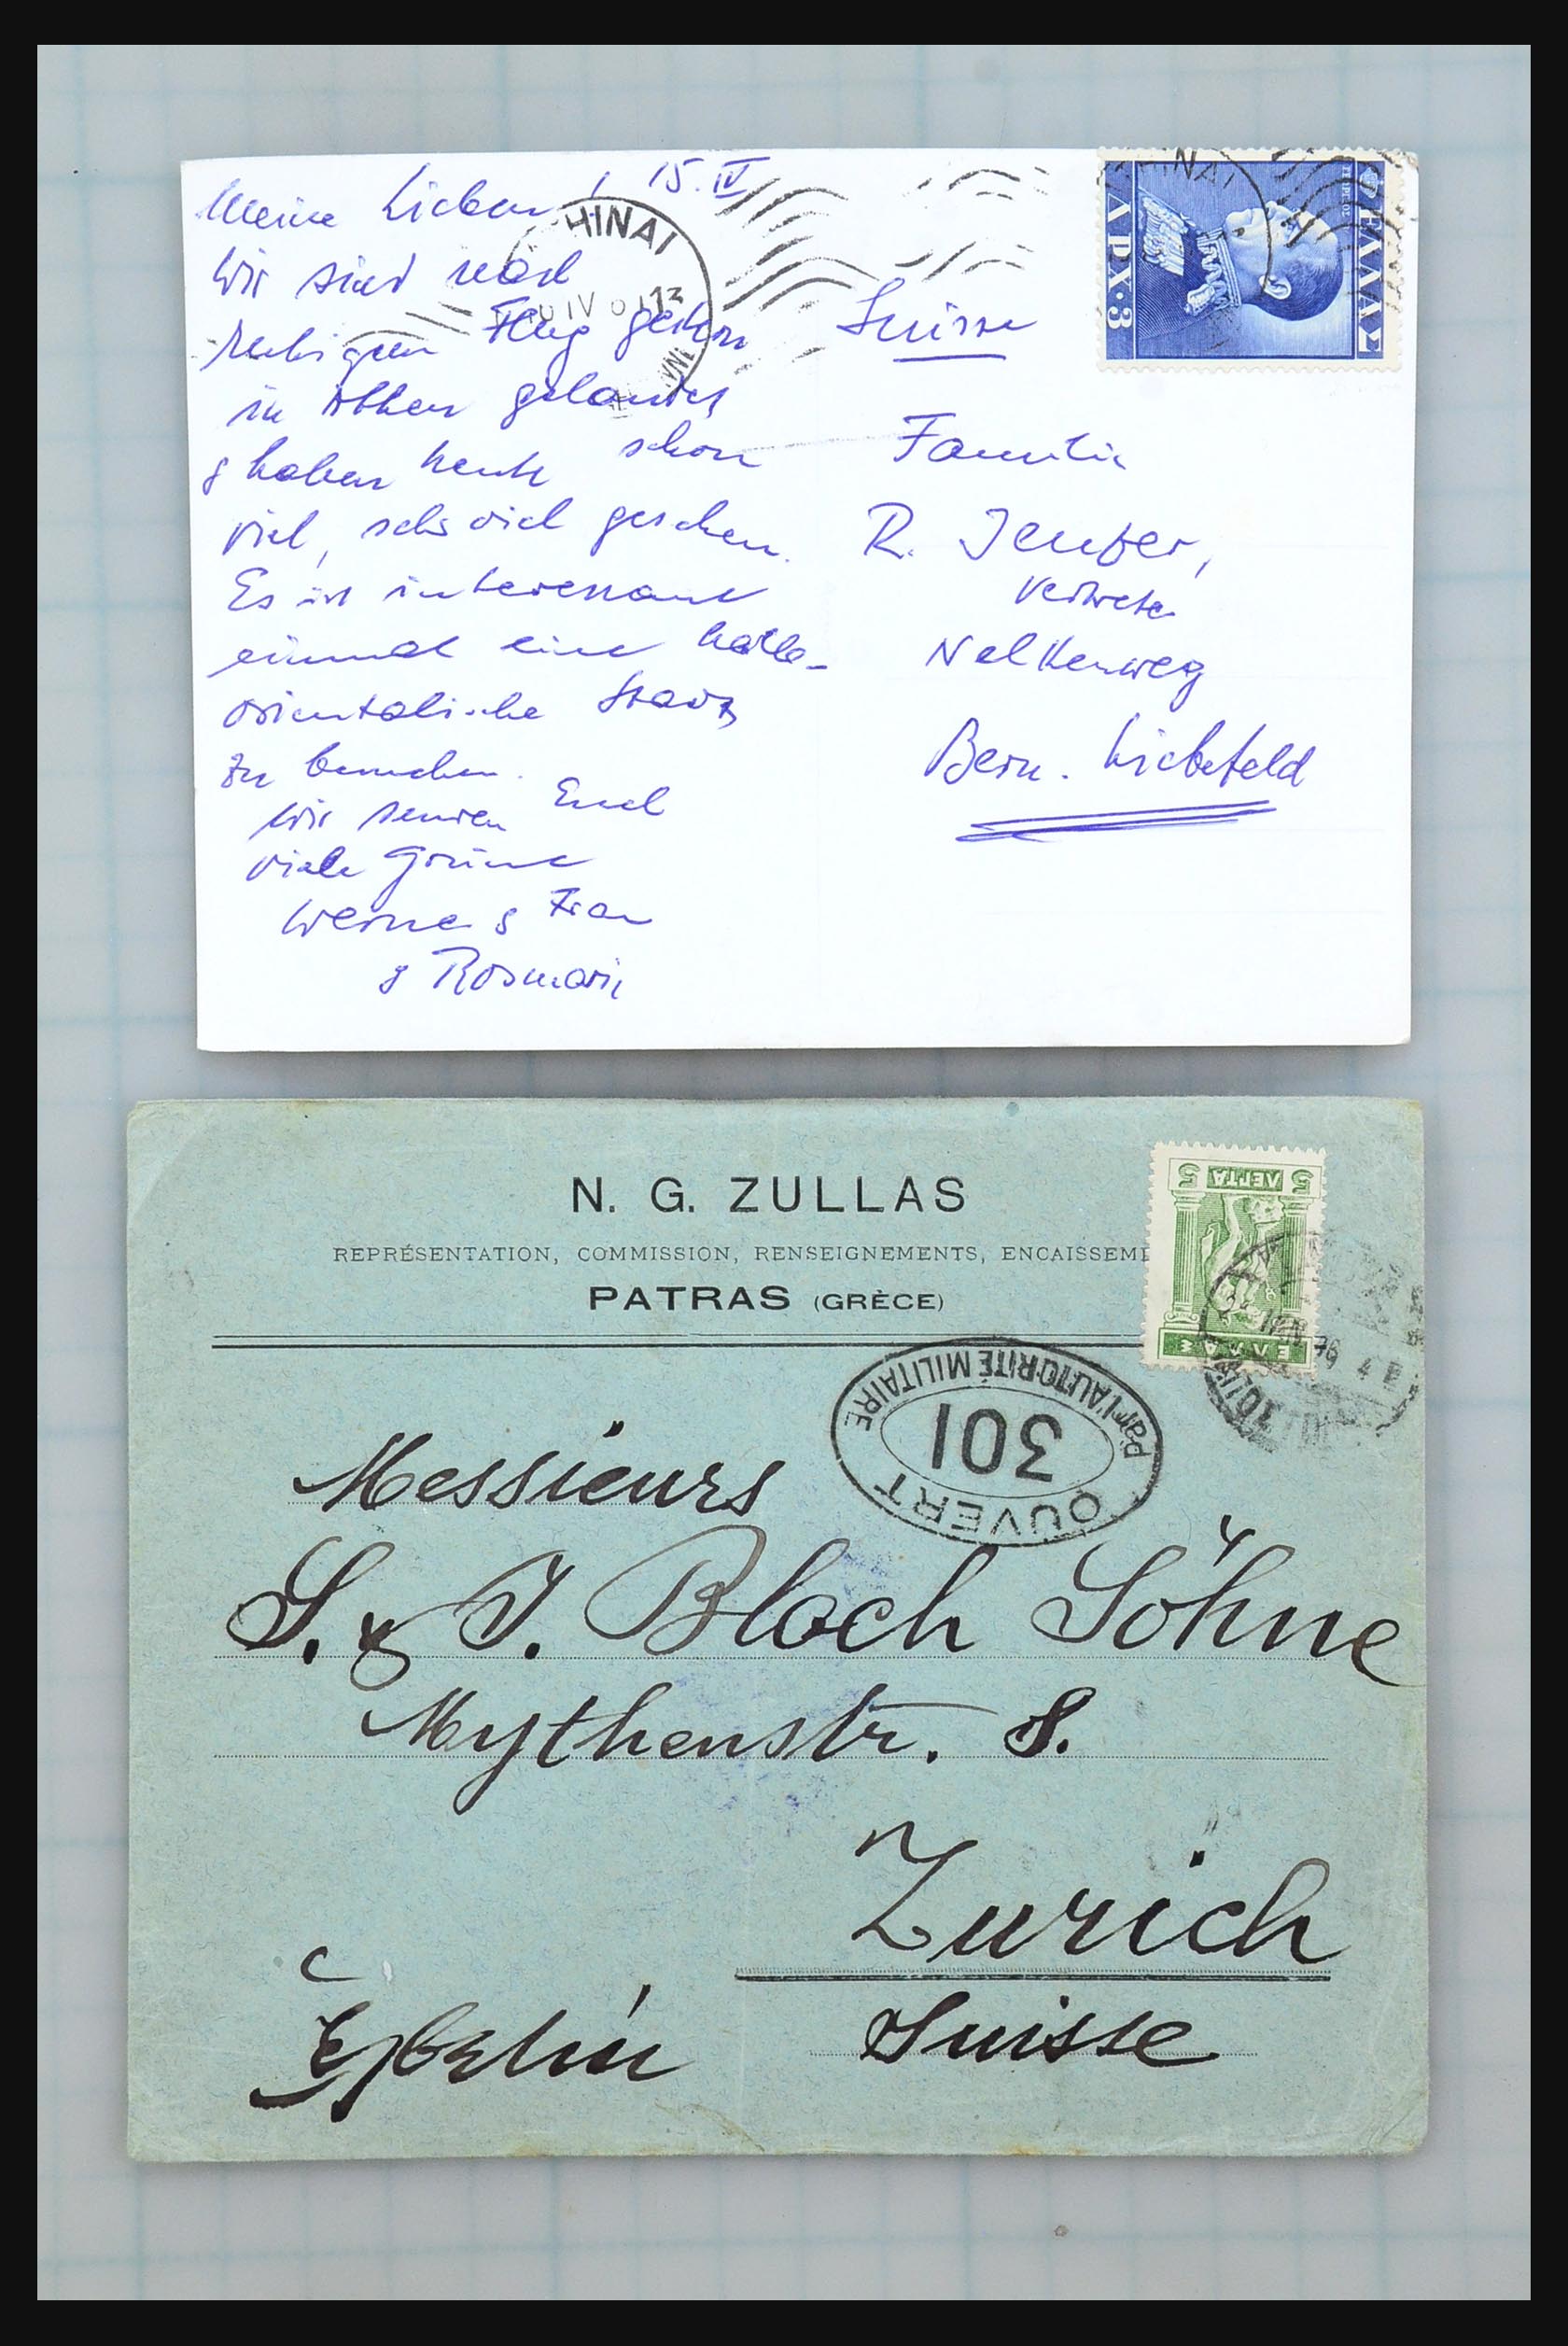 Meine Lieben, 15. IV
Wir sind nach
ruhigem Flug gestern
in Athen gelandet
& haben heute schon
viel, sehr viel gesehen.
Es ist interessant
einmal eine halb-
orientalische Stadt
zu besuchen.
Wir senden Euch
viele Grüsse
Werner & Frau
& Rosmarie
HINAI
IV
ΕΛΛΑΣ
ΔΡΧ·3
HINAI
Suisse
Familie
R. Jenzer,
Vertreter
Nelkenweg
Bern. Liebefeld
N. G. ZULLAS
REPRÉSENTATION, COMMISSION, RENSEIGNEMENTS, ENCAISSEME
PATRAS (GRÈCE)
5 ΛΕΠΤΑ 5
ΕΛΛΑΣ
OUVERT
301
Par l'AUTORITÉ MILITAIRE
Messieurs
S. & J. Bloch Söhne
Mythenstr. 8.
Zurich
Suisse